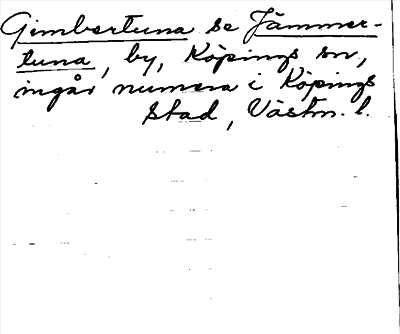 Gimbertuna se Jämmer-
tuna, by, Köpings sn,
ingår numera i Köpings
stad, Västm. l.